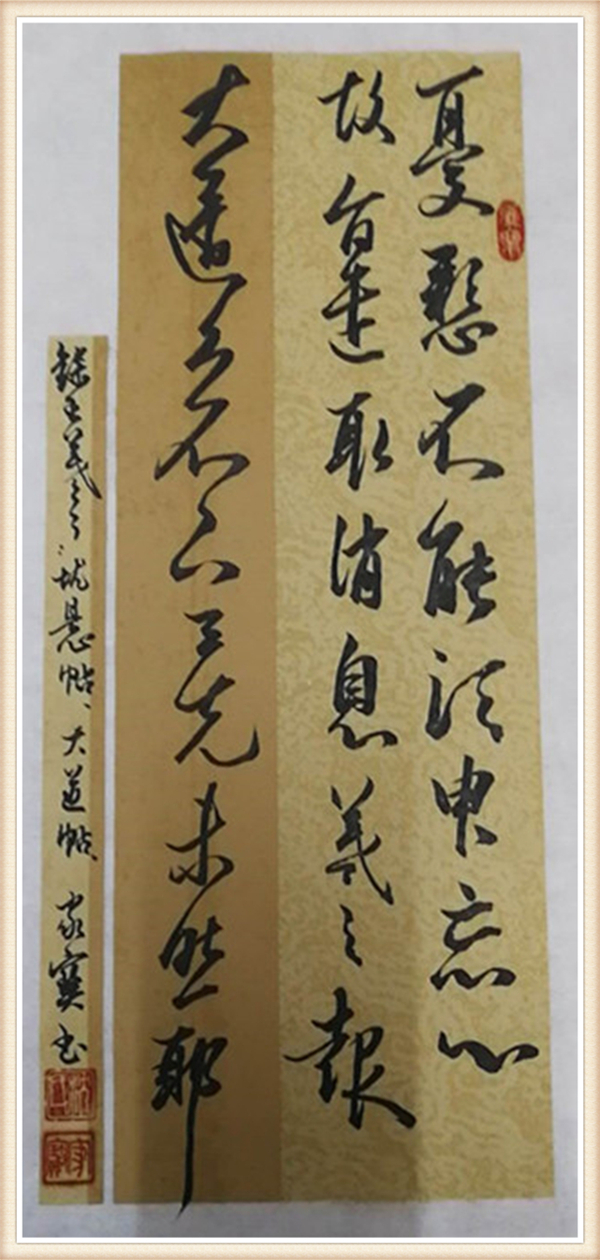 憂懸不能須臾忘心
故旨遣取消息羲之報
大道久不下与先未然耶
録王羲之:忧悬帖、大道帖、家寳书